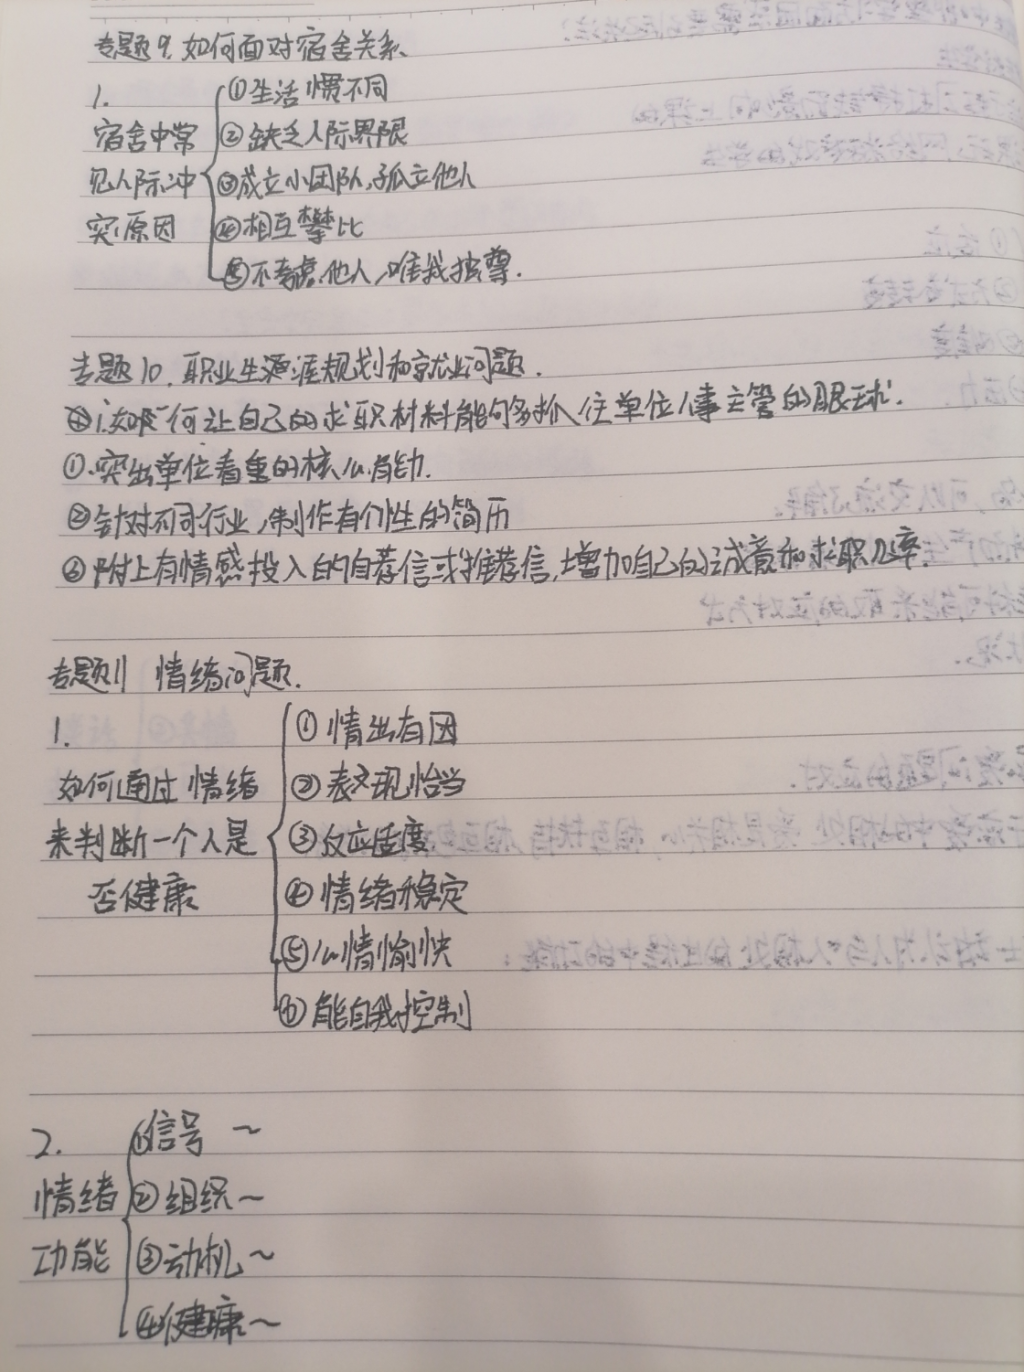 专题9.如何面对宿舍关系.
1.
宿舍中常
见人际冲
突原因
①生活惯不同
②缺乏人际界限
③成立小团队,孤立他人
④相互攀比
⑤不考虑他人,唯我独尊.
专题10.职业生涯规划和就业问题.
1.如何让自己的求职材料能够抓住单位人事主管的眼球.
①.突出单位看重的核心能力.
②针对不同行业,制作有个性的简历
③附上有情感投入的自荐信或推荐信,增加自己的诚意和求职几率.
专题11 情绪问题.
1.
如何通过情绪
来判断一个人是
否健康
①情出有因
②表现恰当
③反应适度
④情绪稳定
⑤心情愉快
⑥能自我控制
2.
情绪
功能
①信号~
②组织~
③动机~
④健康~